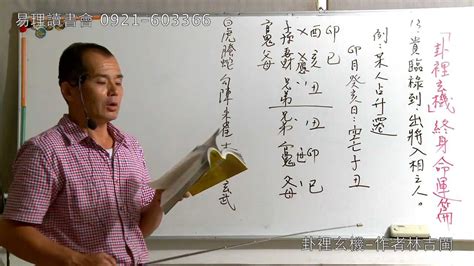 易理讀書會 0921-603366
「卦裡玄機」終身命運篇
貴臨祿到：出將入相之人。
例：某人占升遷
卯月癸亥日：空亡子丑
巳 丑
卯 亥 丑 卯 巳
兄弟 兄弟 官鬼 父母
官鬼 父母
白虎 螣蛇 勾陳 朱雀 玄武
卦裡玄機-作者林古